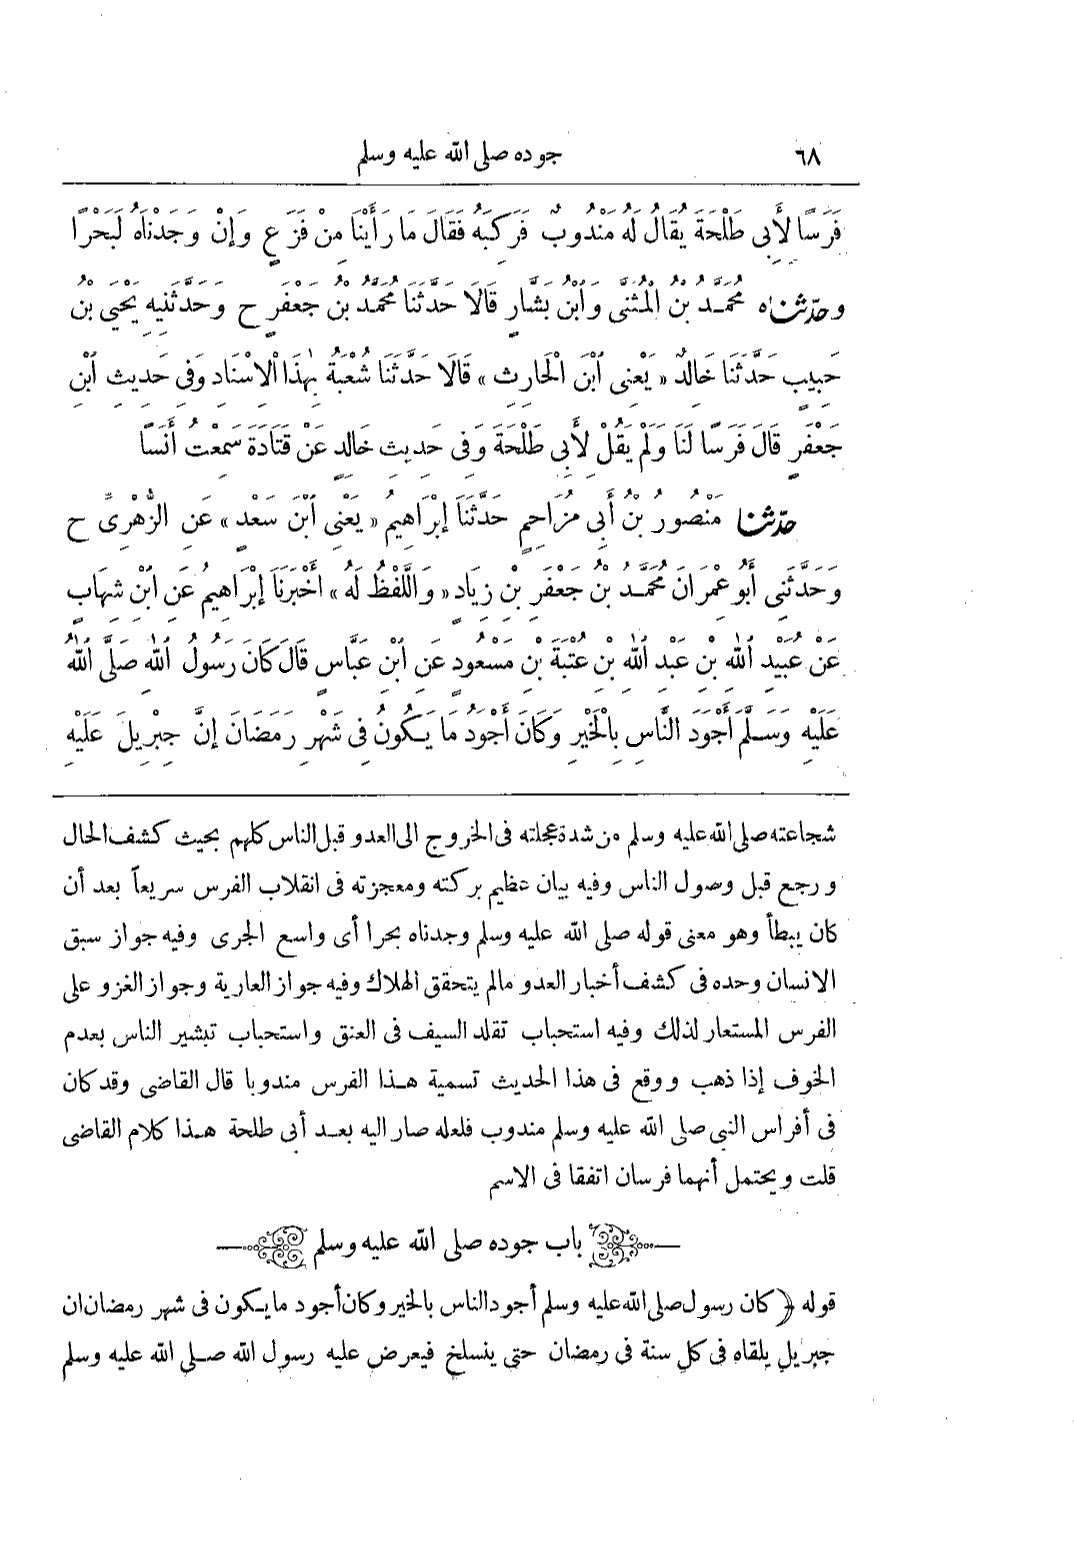 ٦٨
جوده صلى الله عليه وسلم
فَرَسًا لِأَبِى طَلْحَةَ يُقَالُ لَهُ مَنْدُوبٌ فَرَكِبَهُ فَقَالَ مَا رَأَيْنَا مِنْ فَزَعٍ وَإِنْ وَجَدْنَاهُ لَبَحْرًا
وحدثناه مُحَمَّدُ بْنُ الْمُثَنَّى وَابْنُ بَشَّارٍ قَالَا حَدَّثَنَا مُحَمَّدُ بْنُ جَعْفَرٍ ح وَحَدَّثَنِيهِ يَحْيَى بْنُ
حَبِيبٍ حَدَّثَنَا خَالِدٌ « يَعْنِى ابْنَ الْحَارِثِ » قَالَا حَدَّثَنَا شُعْبَةُ بِهٰذَا الْإِسْنَادِ وَفِى حَدِيثِ ابْنِ
جَعْفَرٍ قَالَ فَرَسًا لَنَا وَلَمْ يَقُلْ لِأَبِى طَلْحَةَ وَفِى حَدِيثِ خَالِدٍ عَنْ قَتَادَةَ سَمِعْتُ أَنَسًا
حدثنا مَنْصُورُ بْنُ أَبِى مُزَاحِمٍ حَدَّثَنَا إِبْرَاهِيمُ « يَعْنِى ابْنَ سَعْدٍ » عَنِ الزُّهْرِىِّ ح
وَحَدَّثَنِى أَبُو عِمْرَانَ مُحَمَّدُ بْنُ جَعْفَرِ بْنِ زِيَادٍ « وَاللَّفْظُ لَهُ » أَخْبَرَنَا إِبْرَاهِيمُ عَنِ ابْنِ شِهَابٍ
عَنْ عُبَيْدِ اللهِ بْنِ عَبْدِ اللهِ بْنِ عُتْبَةَ بْنِ مَسْعُودٍ عَنِ ابْنِ عَبَّاسٍ قَالَ كَانَ رَسُولُ اللهِ صَلَّى اللهُ
عَلَيْهِ وَسَلَّمَ أَجْوَدَ النَّاسِ بِالْخَيْرِ وَكَانَ أَجْوَدُ مَا يَكُونُ فِى شَهْرِ رَمَضَانَ إِنَّ جِبْرِيلَ عَلَيْهِ
شجاعته صلى الله عليه وسلم من شدة عجلته فى الخروج الى العدو قبل الناس كلهم بحيث كشف الحال
ورجع قبل وصول الناس وفيه بيان عظيم بركته ومعجزته فى انقلاب الفرس سريعاً بعد أن
كان يبطأ وهو معنى قوله صلى الله عليه وسلم وجدناه بحرا أى واسع الجرى وفيه جواز سبق
الانسان وحده فى كشف أخبار العدو مالم يتحقق الهلاك وفيه جواز العارية وجواز الغزو على
الفرس المستعار لذلك وفيه استحباب تقلد السيف فى العنق واستحباب تبشير الناس بعدم
الخوف إذا ذهب ووقع فى هذا الحديث تسمية هذا الفرس مندوبا قال القاضى وقد كان
فى أفراس النبى صلى الله عليه وسلم مندوب فلعله صار اليه بعد أبى طلحة هذا كلام القاضى
قلت ويحتمل أنهما فرسان اتفقا فى الاسم
باب جوده صلى الله عليه وسلم
قوله ﴿ كان رسول صلى الله عليه وسلم أجود الناس بالخير وكان أجود ما يكون فى شهر رمضان ان
جبريل يلقاه فى كل سنة فى رمضان حتى ينسلخ فيعرض عليه رسول الله صلى الله عليه وسلم